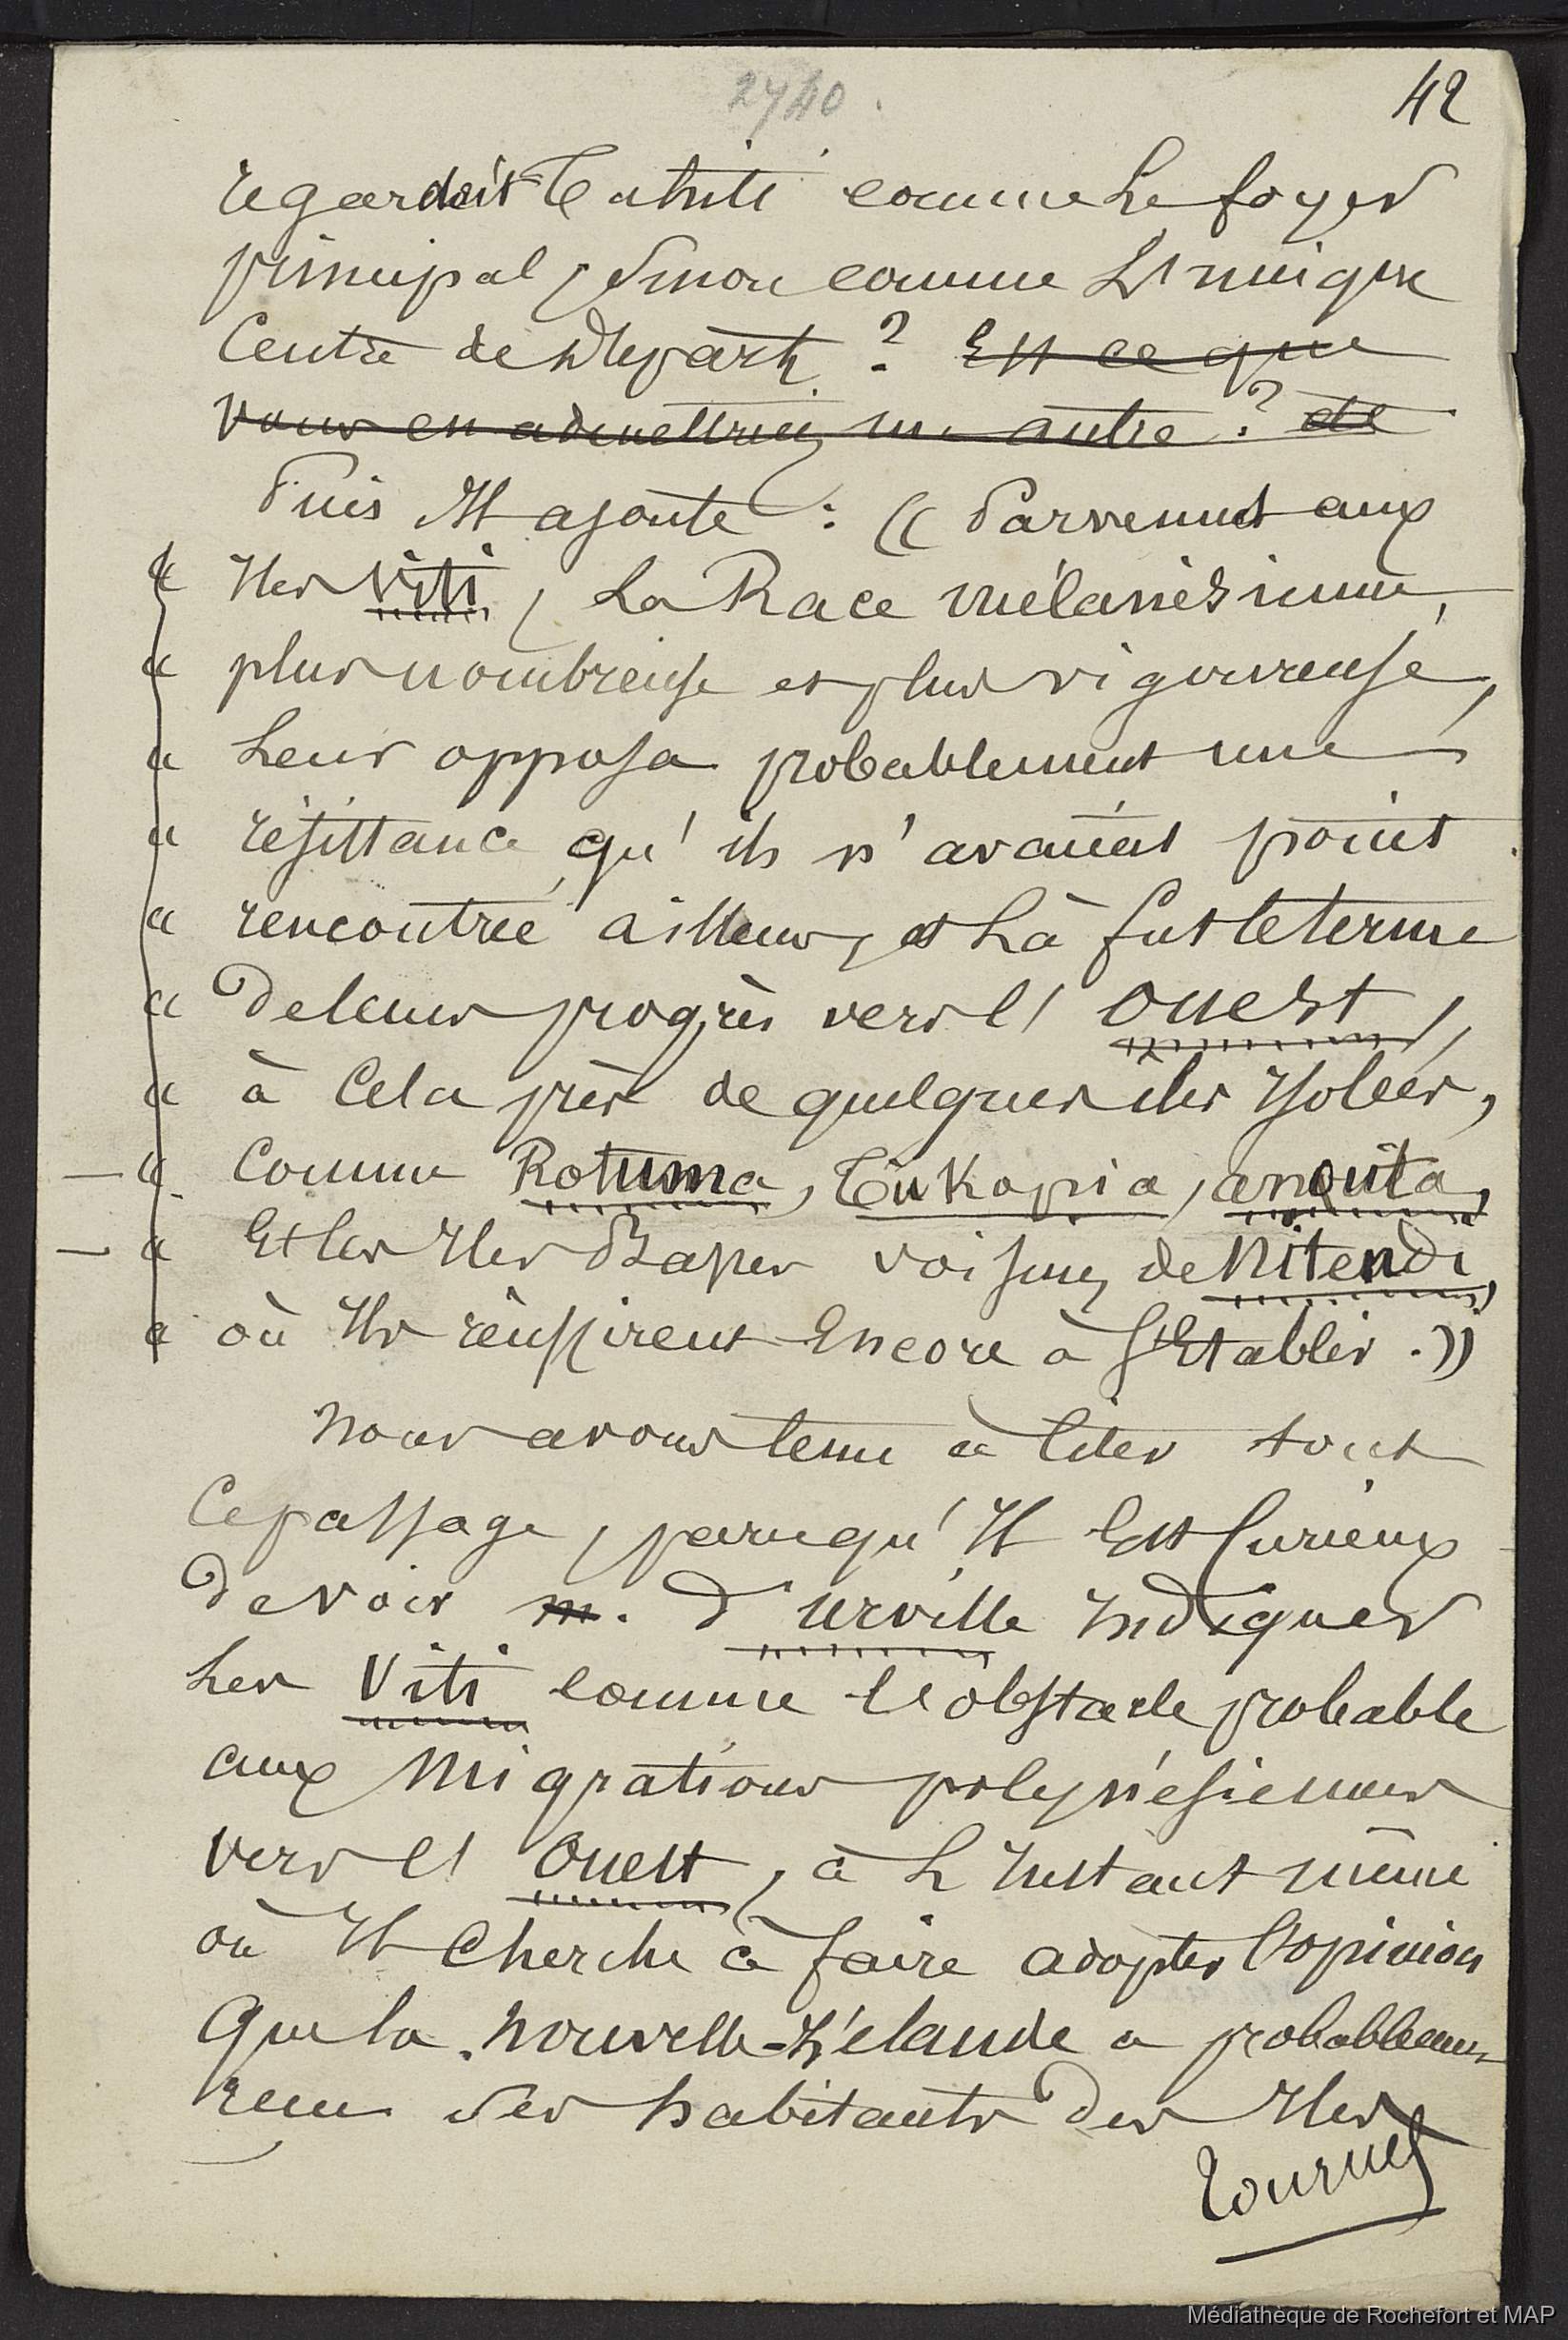 2740.
42
regardait Tahiti comme le foyer
principal, sinon comme l'unique
Centre de départ ? Est ce que
vous en admettriez un autre ? de
Puis Il ajoute : (( Parvenus aux
« Iles Viti, La Race mélanésienne,
« plus nombreuse et plus vigoureuse,
« Leur opposa probablement une
« résistance qu'ils n'avaient point
« rencontrée ailleurs, et Là fut le terme
« de leurs progrès vers l'ouest,
« à Cela près de quelques îles Isolées,
— « Comme Rotuma, Tukopia, anouta,
— « Et les Iles Basses voisines de Nitendi,
« où Ils réussirent Encore à s'Etablir. ))
Nous avons tenu à Citer tout
Ce passage, parcequ'Il Est Curieux
De voir m. D'urville Indiquer
Les Viti comme l'obstacle probable
aux Migrations polynésiennes
vers l'Ouest, à L'Instant même
où Il Cherche à faire adopter l'opinion
Que la Nouvelle-Zélande a probablement
reçu ses habitants des Iles
Tournez
Médiathèque de Rochefort et MAP